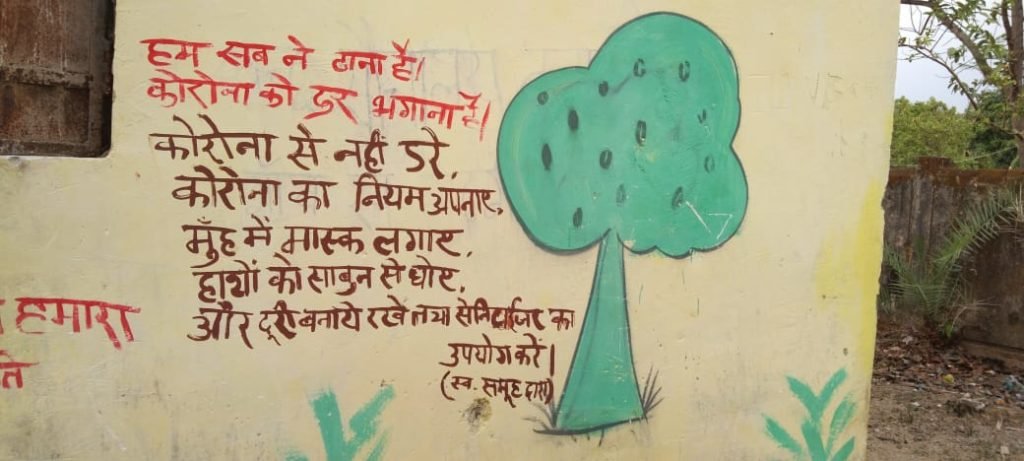 हम सब ने ठाना है।
कोरोना को दूर भगाना है।
कोरोना से नहीं डरे,
कोरोना का नियम अपनाए,
मुँह में मास्क लगाए,
हाथों को साबुन से धोए,
और दूरी बनाये रखे तथा सेनिटाईजर का
उपयोग करें।
(स्व. समूह द्वारा)
हमारा
ते